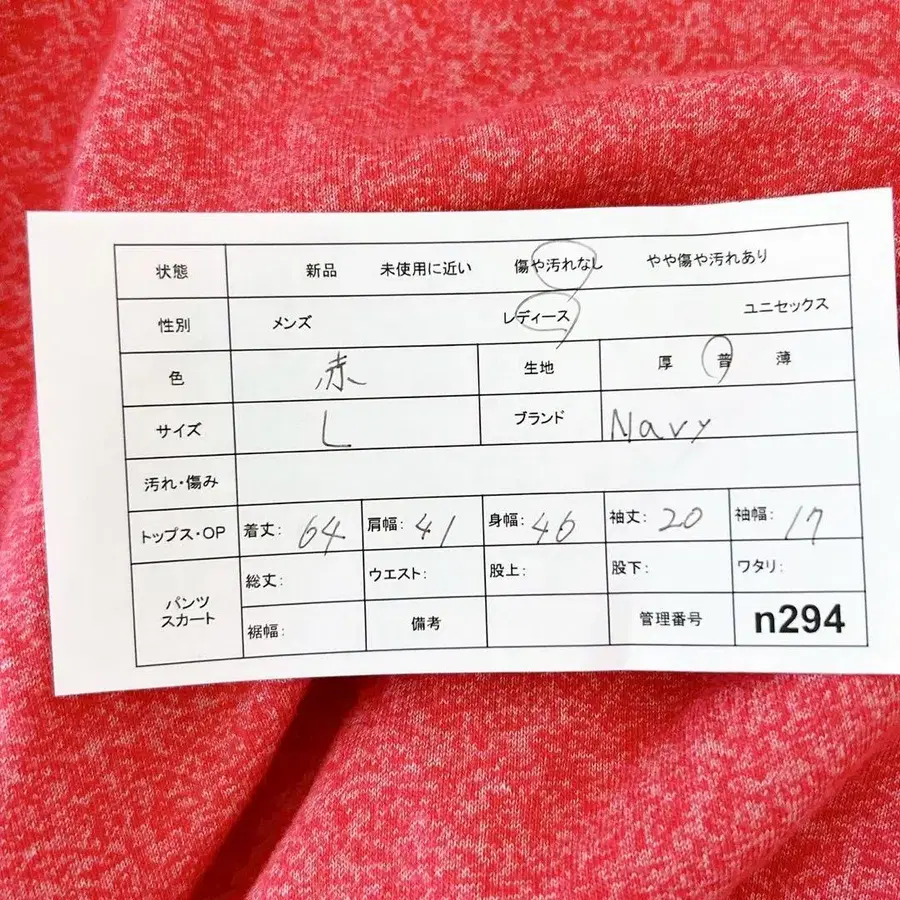 状態 新品 未使用に近い 傷や汚れなし やや傷や汚れあり
性別 メンズ レディース ユニセックス
色 赤 生地 厚 普 薄
サイズ L ブランド Navy
汚れ・傷み
トップス・OP 着丈: 64 肩幅: 41 身幅: 46 袖丈: 20 袖幅: 17
パンツ スカート 総丈: ウエスト: 股上: 股下: ワタリ:
裾幅: 備考 管理番号 n294